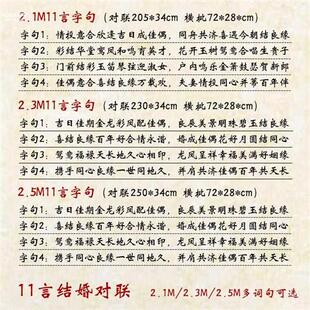 2.1M11言字句 (对联205*34cm 横批72*28cm)
字句1: 情投意合欣逢吉日成佳偶, 同舟共济喜遇今朝结良缘
字句2: 彩结华堂鸾凤和鸣育英才, 花开玉树鸳鸯合唱生贵子
字句3: 门前结彩玉笛琴弦迎淑女, 户内鸣乐金箫鼓瑟贺新郎
字句4: 佳偶意合喜结良缘万载欢, 夫妻情投同心并蒂百年伴
2.3M11言字句 (对联230*34cm 横批72*28cm)
字句1: 吉日佳期金龙彩凤配佳偶, 良辰美景明珠碧玉结良缘
字句2: 喜结良缘百年好合情永谐, 婚成佳偶花好月圆结同心
字句3: 鸳鸯福禄天长地久心相印, 龙凤呈祥幸福美满谐良缘
字句4: 携手同心良缘一世同地久, 并肩合缘佳偶百年共天长
2.5M11言字句 (对联250*34cm 横批72*28cm)
字句1: 吉日佳期金龙彩凤配佳偶, 良辰美景明珠碧玉结良缘
字句2: 喜结良缘百年好合情永谐, 婚成佳偶花好月圆结同心
字句3: 鸳鸯福禄天长地久心相印, 龙凤呈祥幸福美满谐良缘
字句4: 携手同心良缘一世同地久, 并肩合缘佳偶百年共天长
11言结婚对联 2.1M/2.3M/2.5M多词句可选